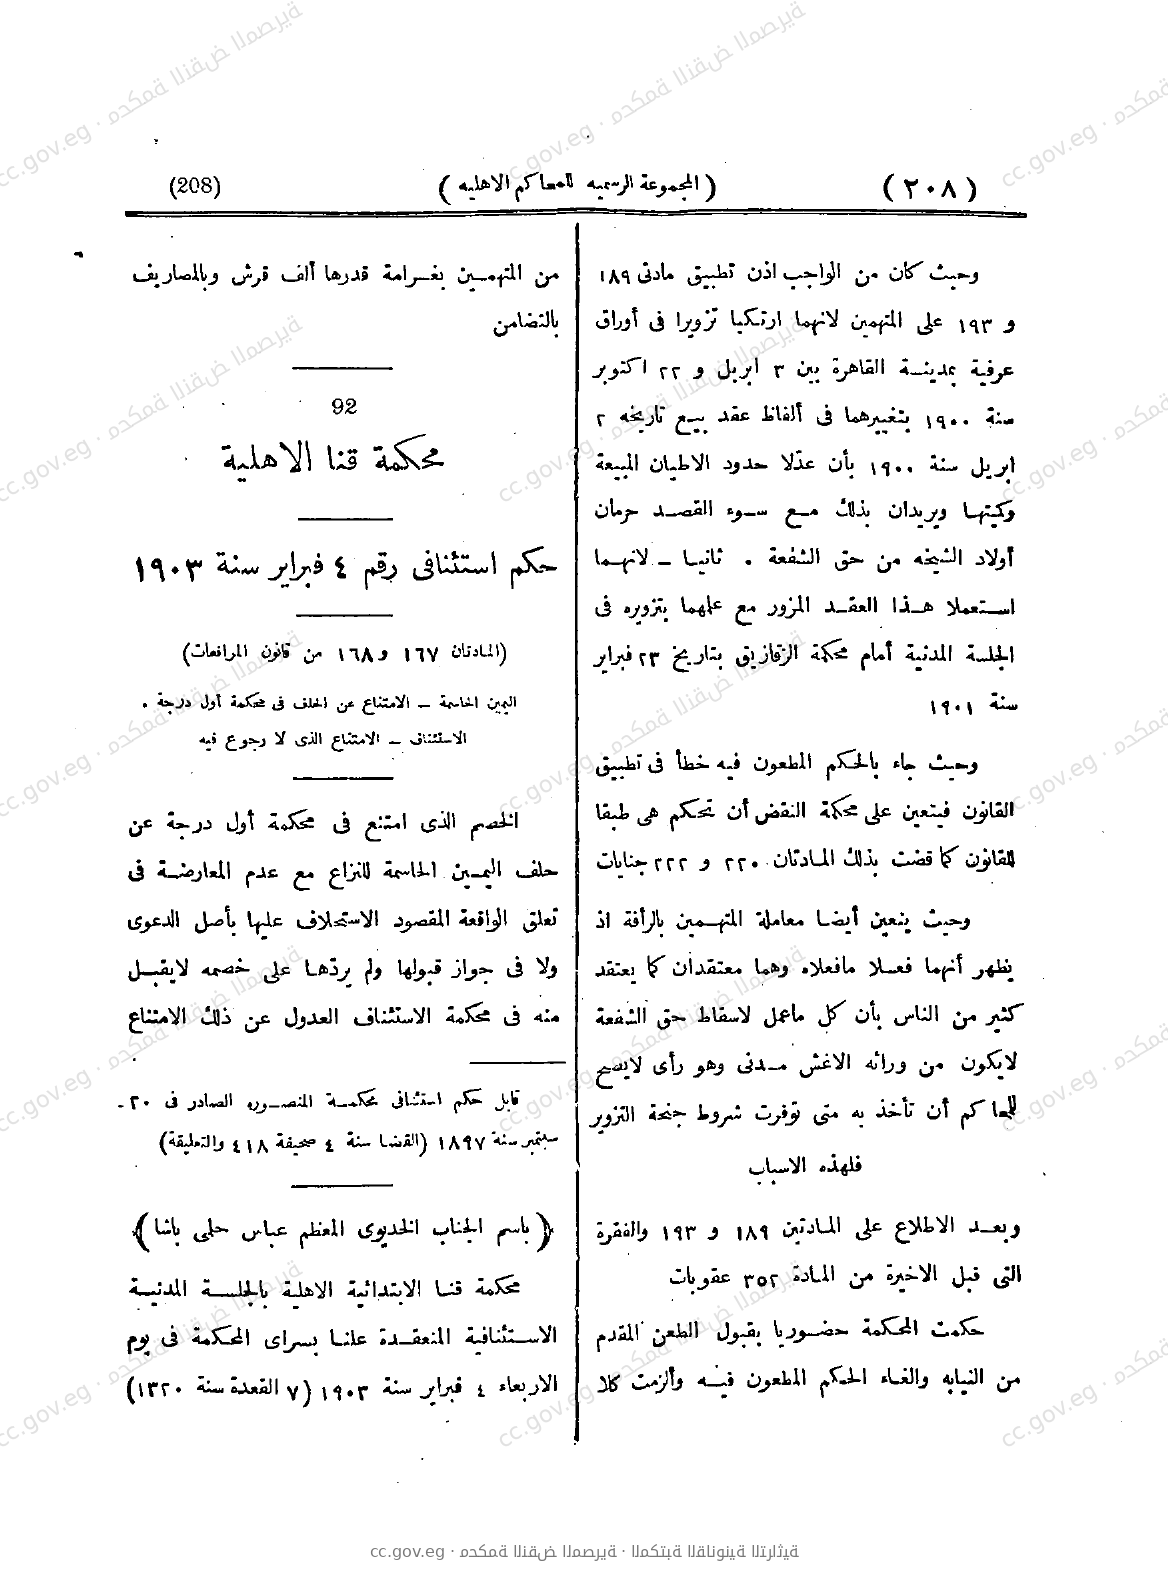 (٢٠٨) (المجموعة الرسميه للمحاكم الاهليه) (208)
وحيث كان من الواجب اذن تطبيق مادتى ١٨٩
و ١٩٣ على المتهمين لانهما ارتكبا تزويرا فى أوراق
عرفية بمدينة القاهرة بين ٣ ابريل و ٢٢ اكتوبر
سنة ١٩٠٠ بتغييرهما فى ألفاظ عقد بيع تاريخه ٢
ابريل سنة ١٩٠٠ بأن عدّلا حدود الاطيان المبيعة
وكميتها ويريدان بذلك مع سوء القصد حرمان
أولاد الشيخه من حق الشفعة . ثانيا – لانهما
استعملا هذا العقد المزور مع علمهما بتزويره فى
الجلسة المدنية أمام محكمة الزقازيق بتاريخ ٢٣ فبراير
سنة ١٩٠١
وحيث جاء بالحكم المطعون فيه خطأ فى تطبيق
القانون فيتعين على محكمة النقض أن تحكم هى طبقا
للقانون كما قضت بذلك المادتان ٢٢٠ و ٢٢٢ جنايات
وحيث يتعين أيضا معاملة المتهمين بالرأفة اذ
يظهر أنهما فعلا مافعلاه وهما معتقدان كما يعتقد
كثير من الناس بأن كل ماعمل لاسقاط حق الشفعة
لايكون من ورائه الاغش مدنى وهو رأى لايصح
للمحاكم أن تأخذ به متى توفرت شروط جنحة التزوير
فلهذه الاسباب
وبعد الاطلاع على المادتين ١٨٩ و ١٩٣ والفقرة
التى قبل الاخيرة من المادة ٣٥٢ عقوبات
حكمت المحكمة حضوريا بقبول الطعن المقدم
من النيابه والغاء الحكم المطعون فيه وألزمت كلا
من المتهمين بغرامة قدرها ألف قرش وبالمصاريف
بالتضامن
92
محكمة قنا الاهلية
حكم استئنافى رقم ٤ فبراير سنة ١٩٠٣
(المادتان ١٦٧ و١٦٨ من قانون المرافعات)
اليمين الحاسمة – الامتناع عن الحلف فى محكمة أول درجة .
الاستئناف – الامتناع الذى لا رجوع فيه
الخصم الذى امتنع فى محكمة أول درجة عن
حلف اليمين الحاسمة للنزاع مع عدم المعارضة فى
تعلق الواقعة المقصود الاستحلاف عليها بأصل الدعوى
ولا فى جواز قبولها ولم يردّها على خصمه لايقبل
منه فى محكمة الاستئناف العدول عن ذلك الامتناع
قابل حكم استئنافى محكمة المنصوره الصادر فى ٢٠
سبتمبر سنة ١٨٩٧ (القضا سنة ٤ صحيفة ٤١٨ والتعليقة)
(باسم الجناب الخديوى المعظم عباس حلمى باشا)
محكمة قنا الابتدائية الاهلية بالجلسة المدنية
الاستئنافية المنعقدة علنا بسراى المحكمة فى يوم
الاربعاء ٤ فبراير سنة ١٩٠٣ (٧ القعدة سنة ١٣٢٠)
cc.gov.eg · محكمة النقض المصرية · المكتبة القانونية التراثية